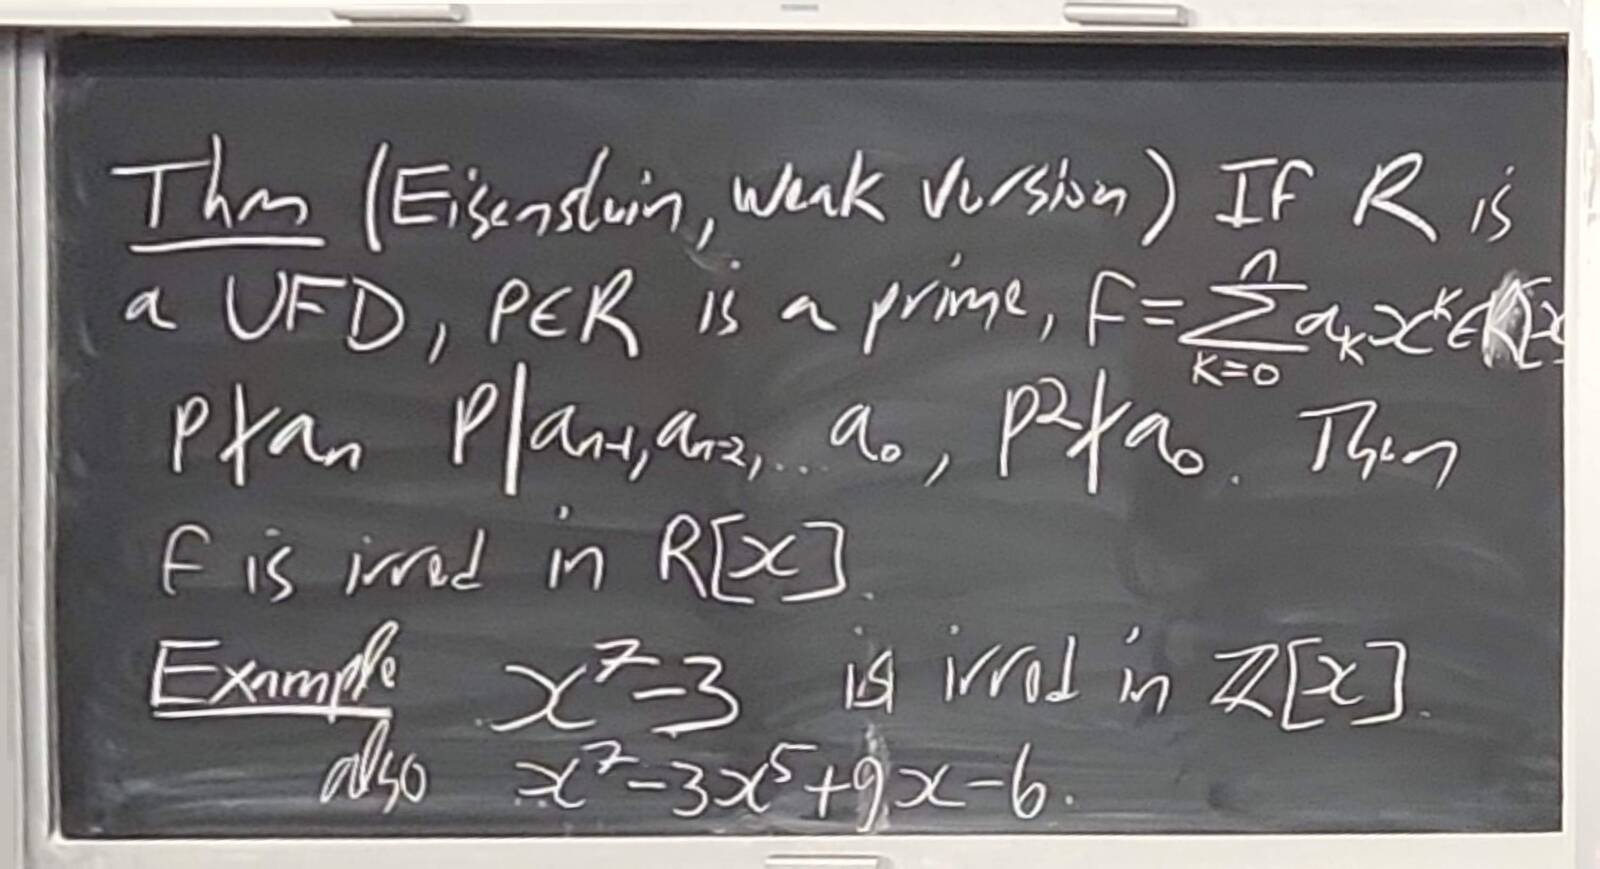 Thm (Eisenstein, weak version) If R is
a UFD, p∈R is a prime, f=∑_{k=0}^{n} a_k x^k ∈ R[x]
p∤a_n p|a_{n-1}, a_{n-2}, ... a_0, p²∤a_0. Then
f is irred in R[x].
Example x⁷-3 is irred in ℤ[x].
also x⁷-3x⁵+9x-6.